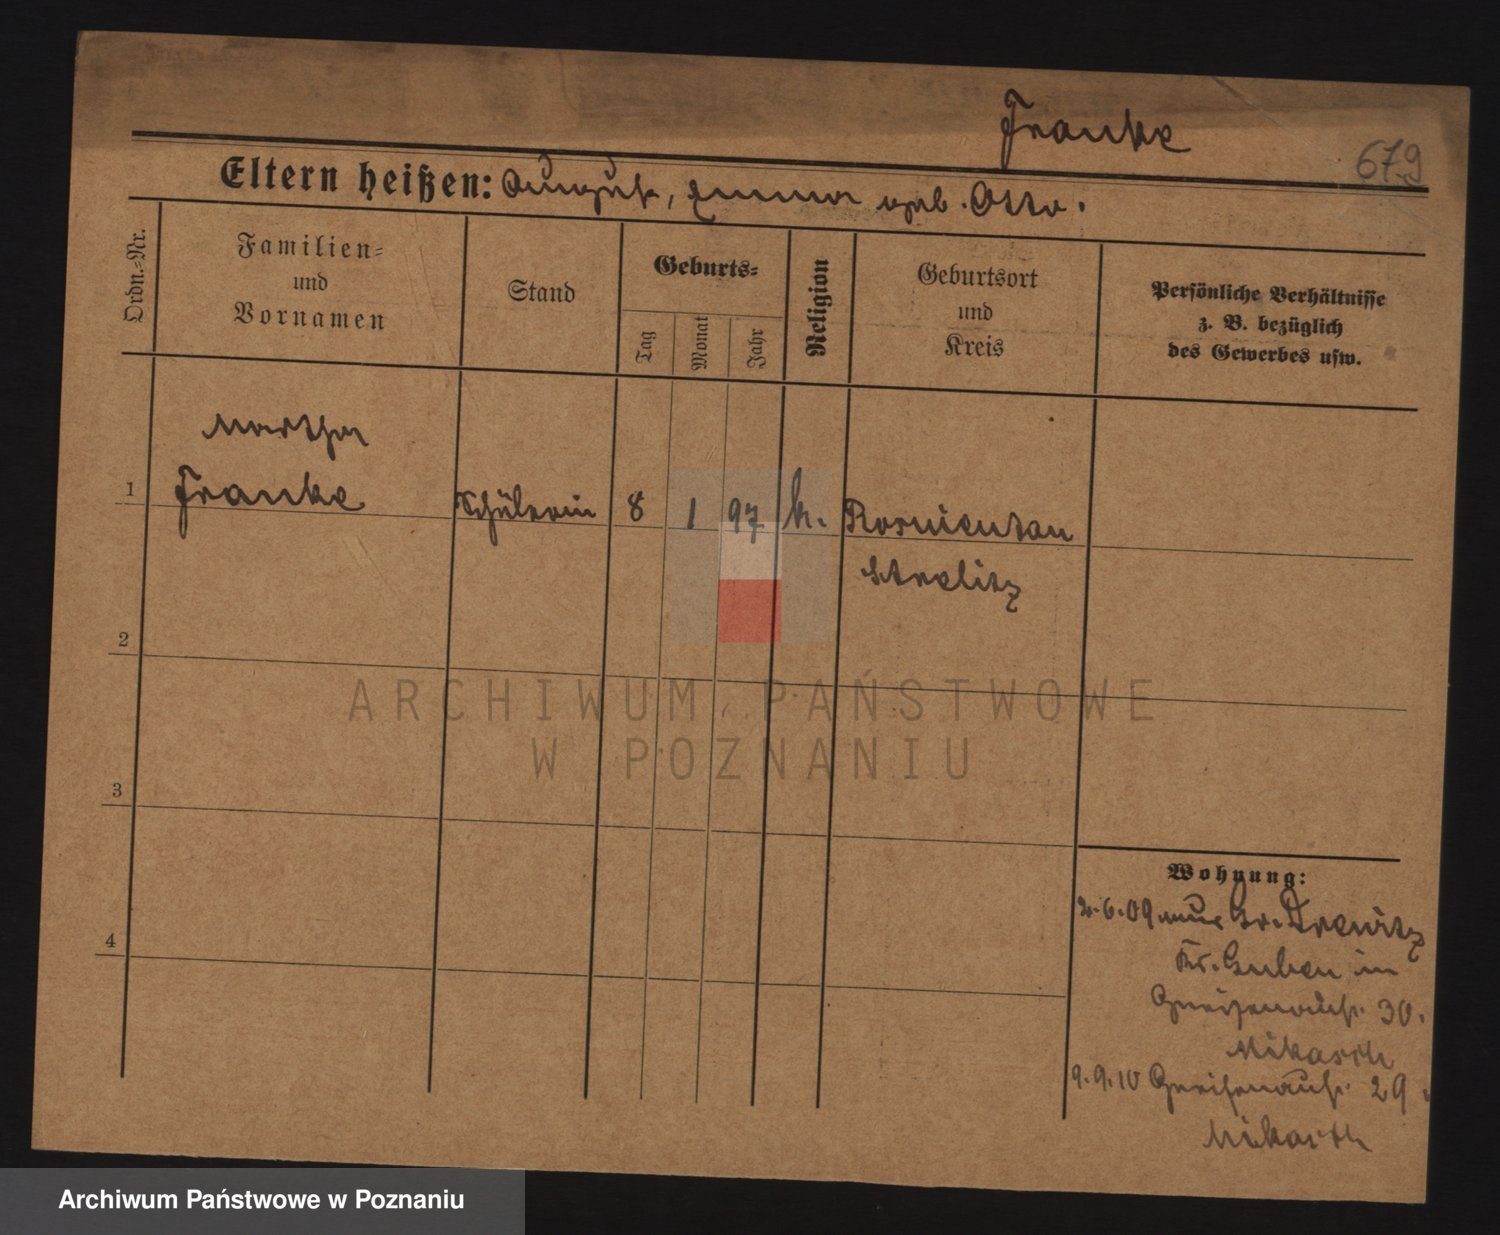 Franke
679
Eltern heißen: August, Emma geb. Otto.
Ordn.-Nr.
Familien-
und
Vornamen
Stand
Geburts-
Tag
Monat
Jahr
Religion
Geburtsort
und
Kreis
Persönliche Verhältnisse
z. B. bezüglich
des Gewerbes usw.
Martha
1 Franke Schülerin 8 1 97 k. Rosnientau
Strelitz
2
3
4
Wohnung:
2.6.09 aus Gr. Drewitz
Kr. Guben in
Gneisenaustr. 30.
9.9.10 Gneisenaustr. 29
ARCHIWUM PAŃSTWOWE
W POZNANIU
Archiwum Państwowe w Poznaniu